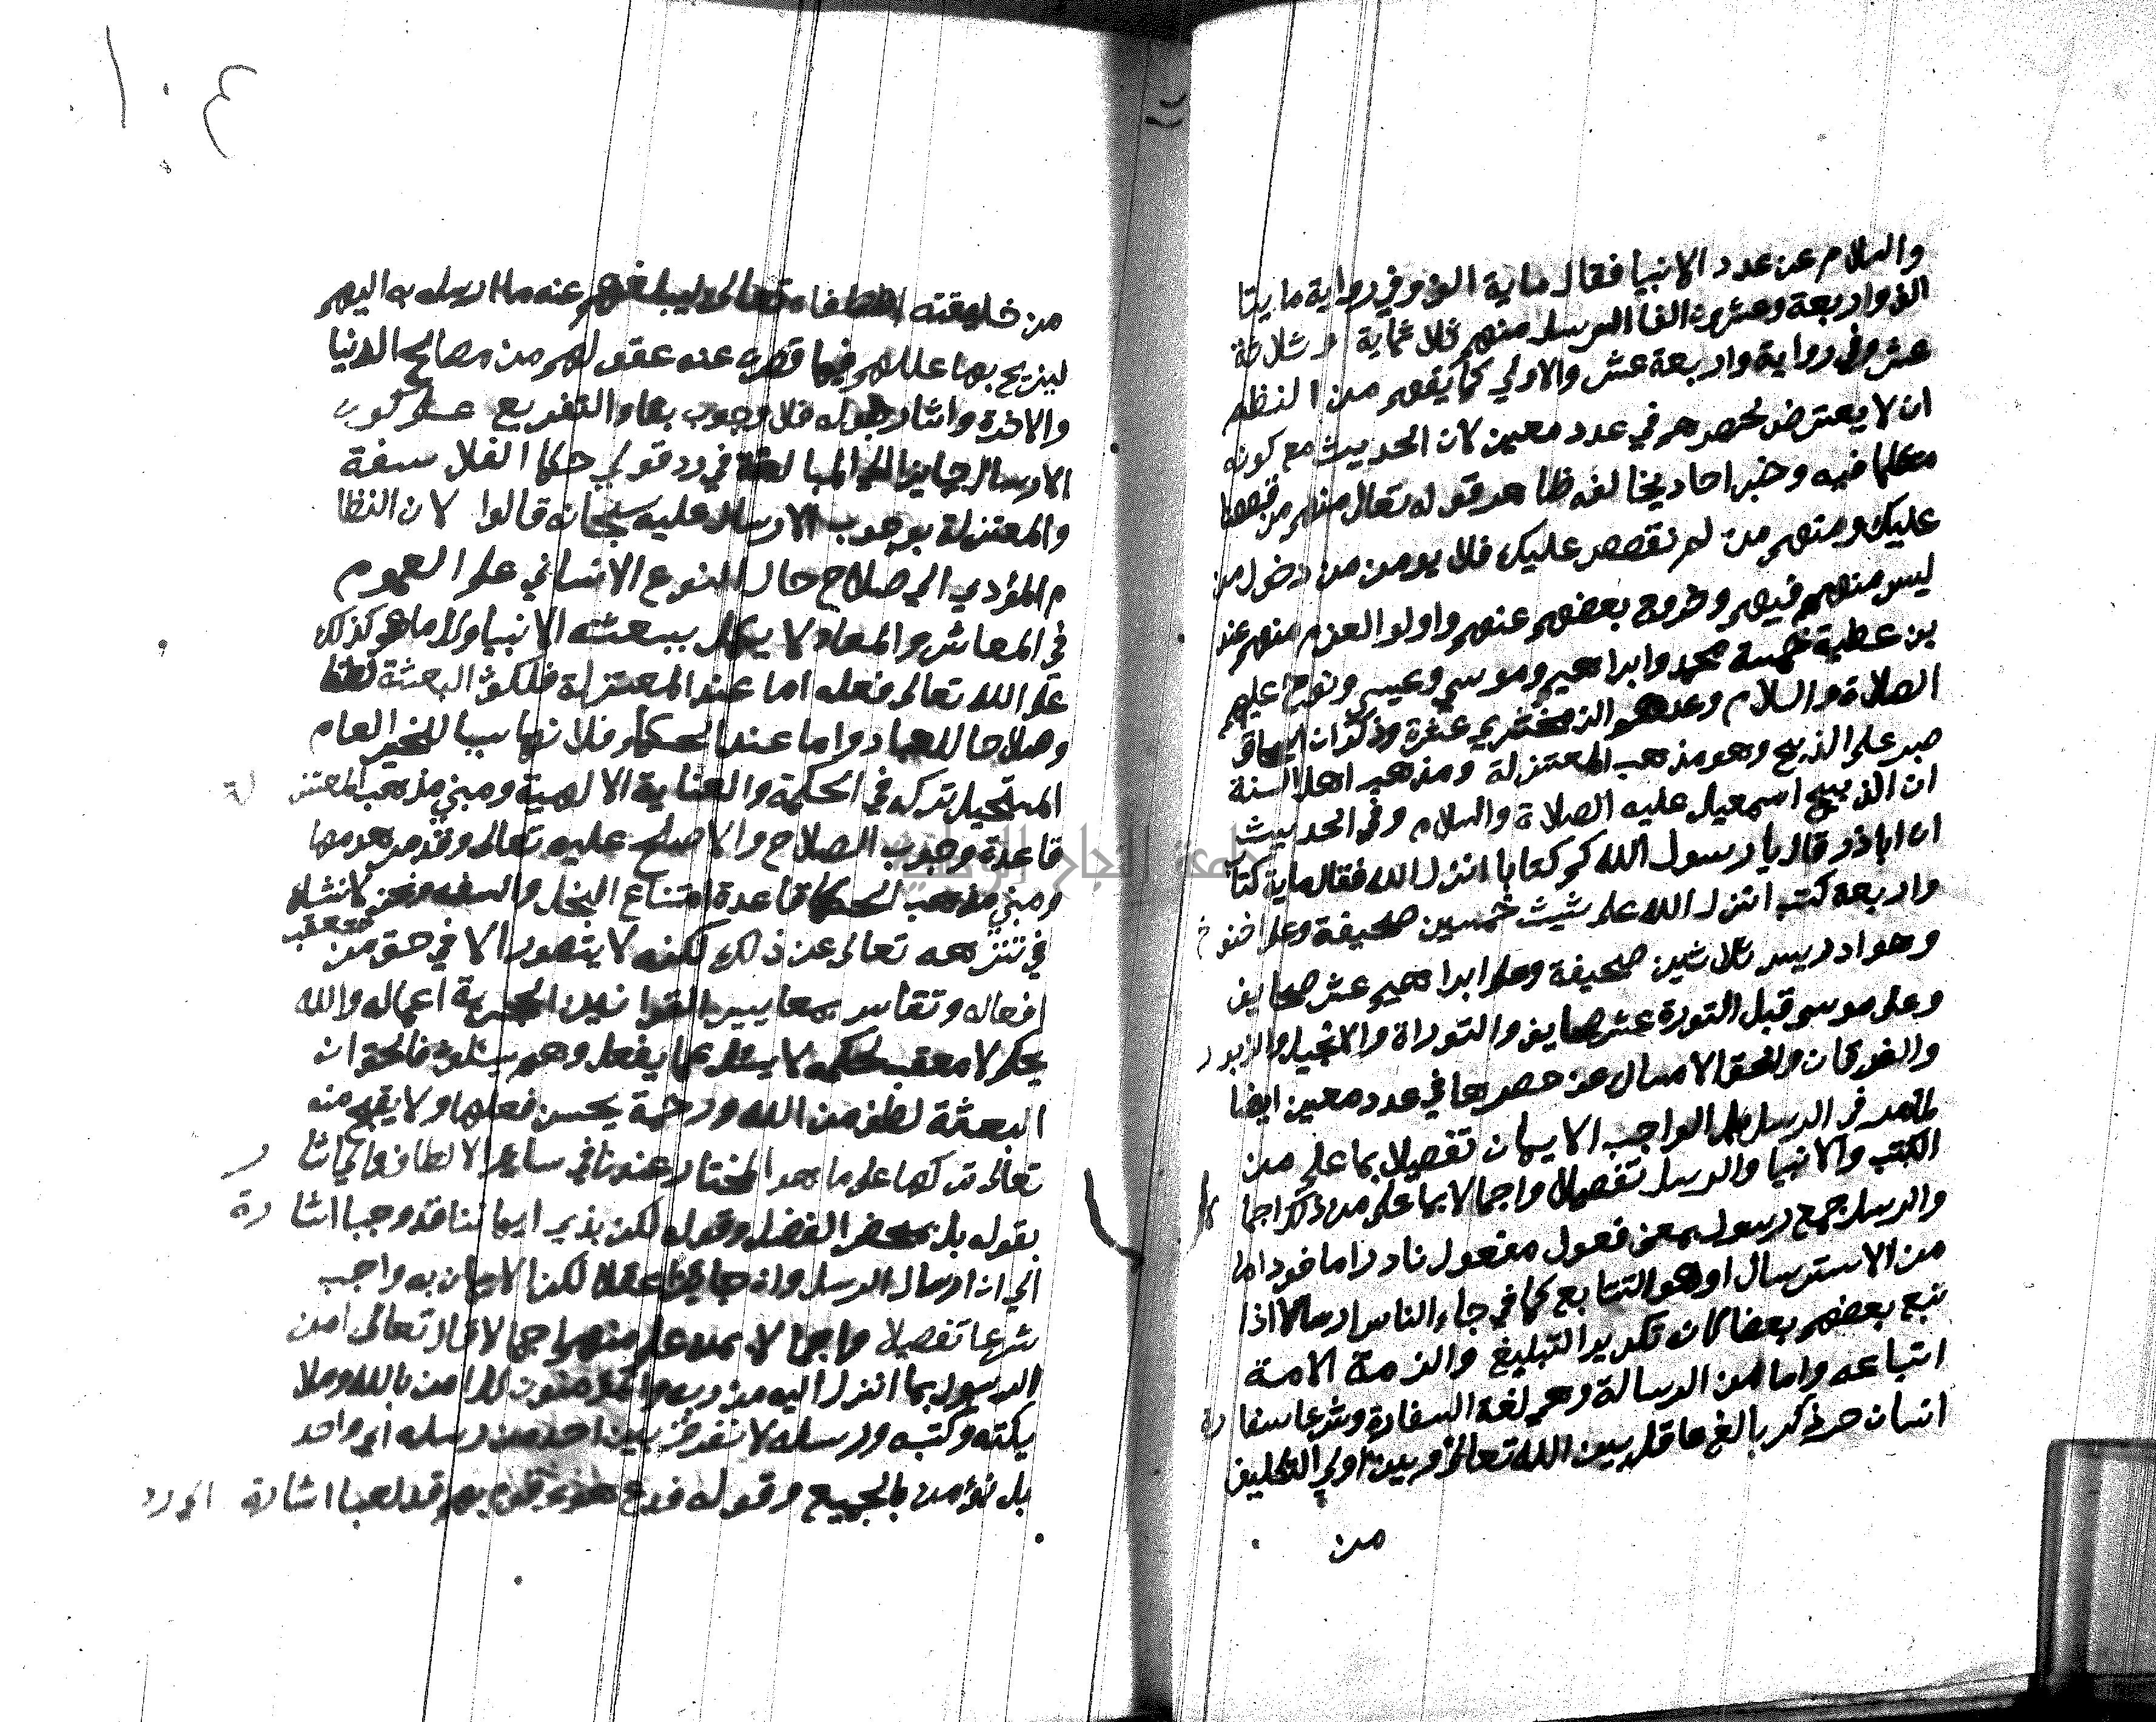 والسلام عن عدد الانبيا فقال ماية الف وفي رواية مايتا
الف واربعة وعشرون الفا الرسل منهم ثلاثماية وثلاثة
عشر وفي رواية واربعة عشر والاولي كما يفهم من النظم
ان لا يعترض لحصرهم في عدد معين لان الحديث مع كونه
متكلما فيه وخبر احاد يخالفه ظاهر قوله تعالى منهم من قصصنا
عليك ومنهم من لم نقصص عليك فلا يومن من دخول من
ليس منهم فيهم وخروج بعضهم عنهم واولو العزم منهم عند
بن عطية خمسة محمد وابراهيم وموسي وعيسي ونوح عليهم
الصلاة والسلام وعدهم الزمخشري عشرة وذكر ان اسحاق
صبر على الذبح وهو مذهب المعتزلة ومذهب اهل السنة
ان الذبيح اسمعيل عليه الصلاة والسلام وفي الحديث
ان اباذر قال يا رسول الله كم كتابا انزل الله فقال ماية كتاب
واربعة كتب انزل الله على شيث خمسين صحيفة وعلى اخنوخ
وهو ادريس ثلاثين صحيفة وعلى ابراهيم عشر صحايف
وعلى موسى قبل التورة عشر صحايف والتوراة والانجيل والزبور
والفرقان والحق الامساك عن حصرها في عدد معين ايضا
كما مر في الرسل بل الواجب الايمان تفصيلا بما علم من
الكتب والانبيا والرسل تفصيلا واجمالا بما علم من ذكر اجمالا
والرسل جمع رسول بمعنى فعول مفعول نادر اما فوداما
من الاسترسال او هو التتابع كما في جاء الناس ارسالا اذا
تبع بعضهم بعضا كانه تكرير التبليغ والزمة الامة
اتباعه واما من الرسالة وهي لغة السفارة وشرعا سفارة
انسان حر ذكر بالغ عاقل بين الله تعالى وبين اولي التكليف
من
١٠٤
من خليقته اصطفاه تعالى ليبلغهم عنه ما ارسله به اليهم
ليزيح بها عللهم فيما قصرت عنه عقولهم من مصالح الدنيا
والاخرة واشار بقوله فلا وجوب بها والتفريع على كون
الارسال جايز الي المبالغة في رد قولي حكما الفلاسفة
والمعتزلة بوجوب الارسال عليه سبحانه قالوا لان النظا
م المؤدي الي صلاح حال النوع الانساني على العموم
في المعاش والمعاد لا يكمل ببعثة الانبيا وكل ما هو كذلك
على الله تعالى فعله اما عند المعتزلة فلكون البعثة لطفا
وصلاحا للعباد واما عند الحكما فلانها سببا للخير العام
المستحيل تركه في الحكمة والعناية الالهية ومبني مذهب المعتزلة
قاعدة وجوب الصلاح والاصلح عليه تعالى وقد مر هدمها
ومبني مذهب الحكما قاعدة امتناع البخل والسفه ونحن لانشك
في تنزهه تعالى عن ذلك لكنه لا يتصور الا في حق من تتعقب
افعاله وتقاس بمعايير القوانين اعماله والله
يحكم لا معقب لحكمه لا يسئل عما يفعل وهم يسئلون فالحق ان
البعثة لطف من الله ورحمة يحسن فعلها ولا يقبح منه
تعالى تركها على ما هو المختار عندنا في ساير الالطاف والي ما اشار
بقوله بل بمحض الفضل وقوله لكن بذي ايماننا قد وجبا اشارة
الي ان ارسال الرسل وان جايزا عقلا لكن الايمان به واجب
شرعا تفصيلا واجمالا بمن علم منهم اجمالا قال تعالى امن
الرسول بما انزل اليه من ربه والمؤمنون كل امن بالله وملا
يكته وكتبه ورسله لا نفرق بين احد من رسله اي واحد
بل نؤمن بالجميع وقوله فدع هوى قوم بهم قد لعبا اشارة الي رد
جامعة النجاح الوطنية